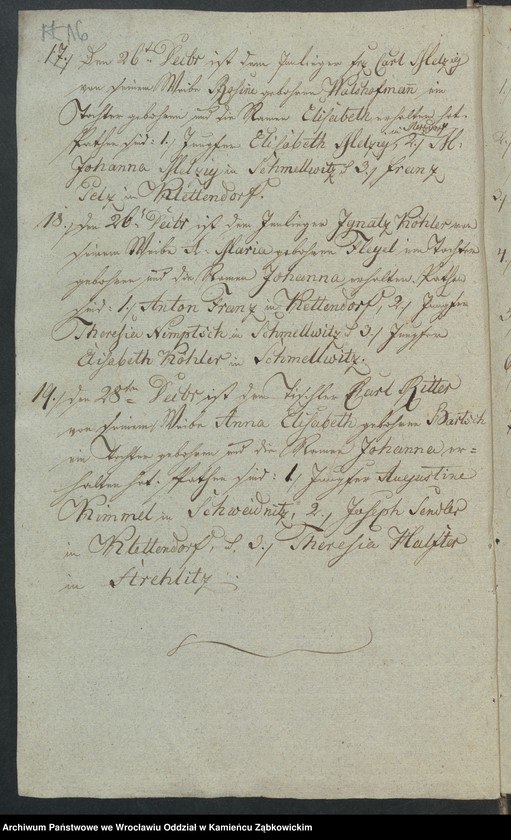 N6
17./ Den 26t Xbr ist dem Inlieger frz Carl Melzig
von seinem Weibe Rosine gebohrene Walshofman ein
Tochter gebohren und die Namen Elisabeth erhalten hat.
Pathen sind: 1./ Jungfer Elisabeth Melzig, 2./ M:
Johanna Melzig in Schmellwitz 3./ Franz
in Klettendorf.
18./ den 26t Xbr ist dem Inlieger Ignatz Kohler von
seinem Weibe A: Maria gebohrene Fleyel ein Tochter
gebohren und die Namen Johanna erhalten. Pathen
sind: 1./ Anton Franz in Klettendorf, 2./ Jungfer
Theresia Nimptsch in Schmellwitz 3./ Jungfer
Elisabeth Kohler in Schmellwitz.
19./ den 28ten Xbr ist dem Tischler Carl Ritter
von seinem Weibe Anna Elisabeth gebohrene Bartsch
ein Tochter gebohren und die Namen Johanna er=
halten hat. Pathen sind: 1./ Jungfer Augustine
Kimmel in Schweidnitz, 2./ Joseph Sendler
in Klettendorf, 3./ Theresia Halfter
in Strehlitz
Archiwum Państwowe we Wrocławiu Oddział w Kamieńcu Ząbkowickim